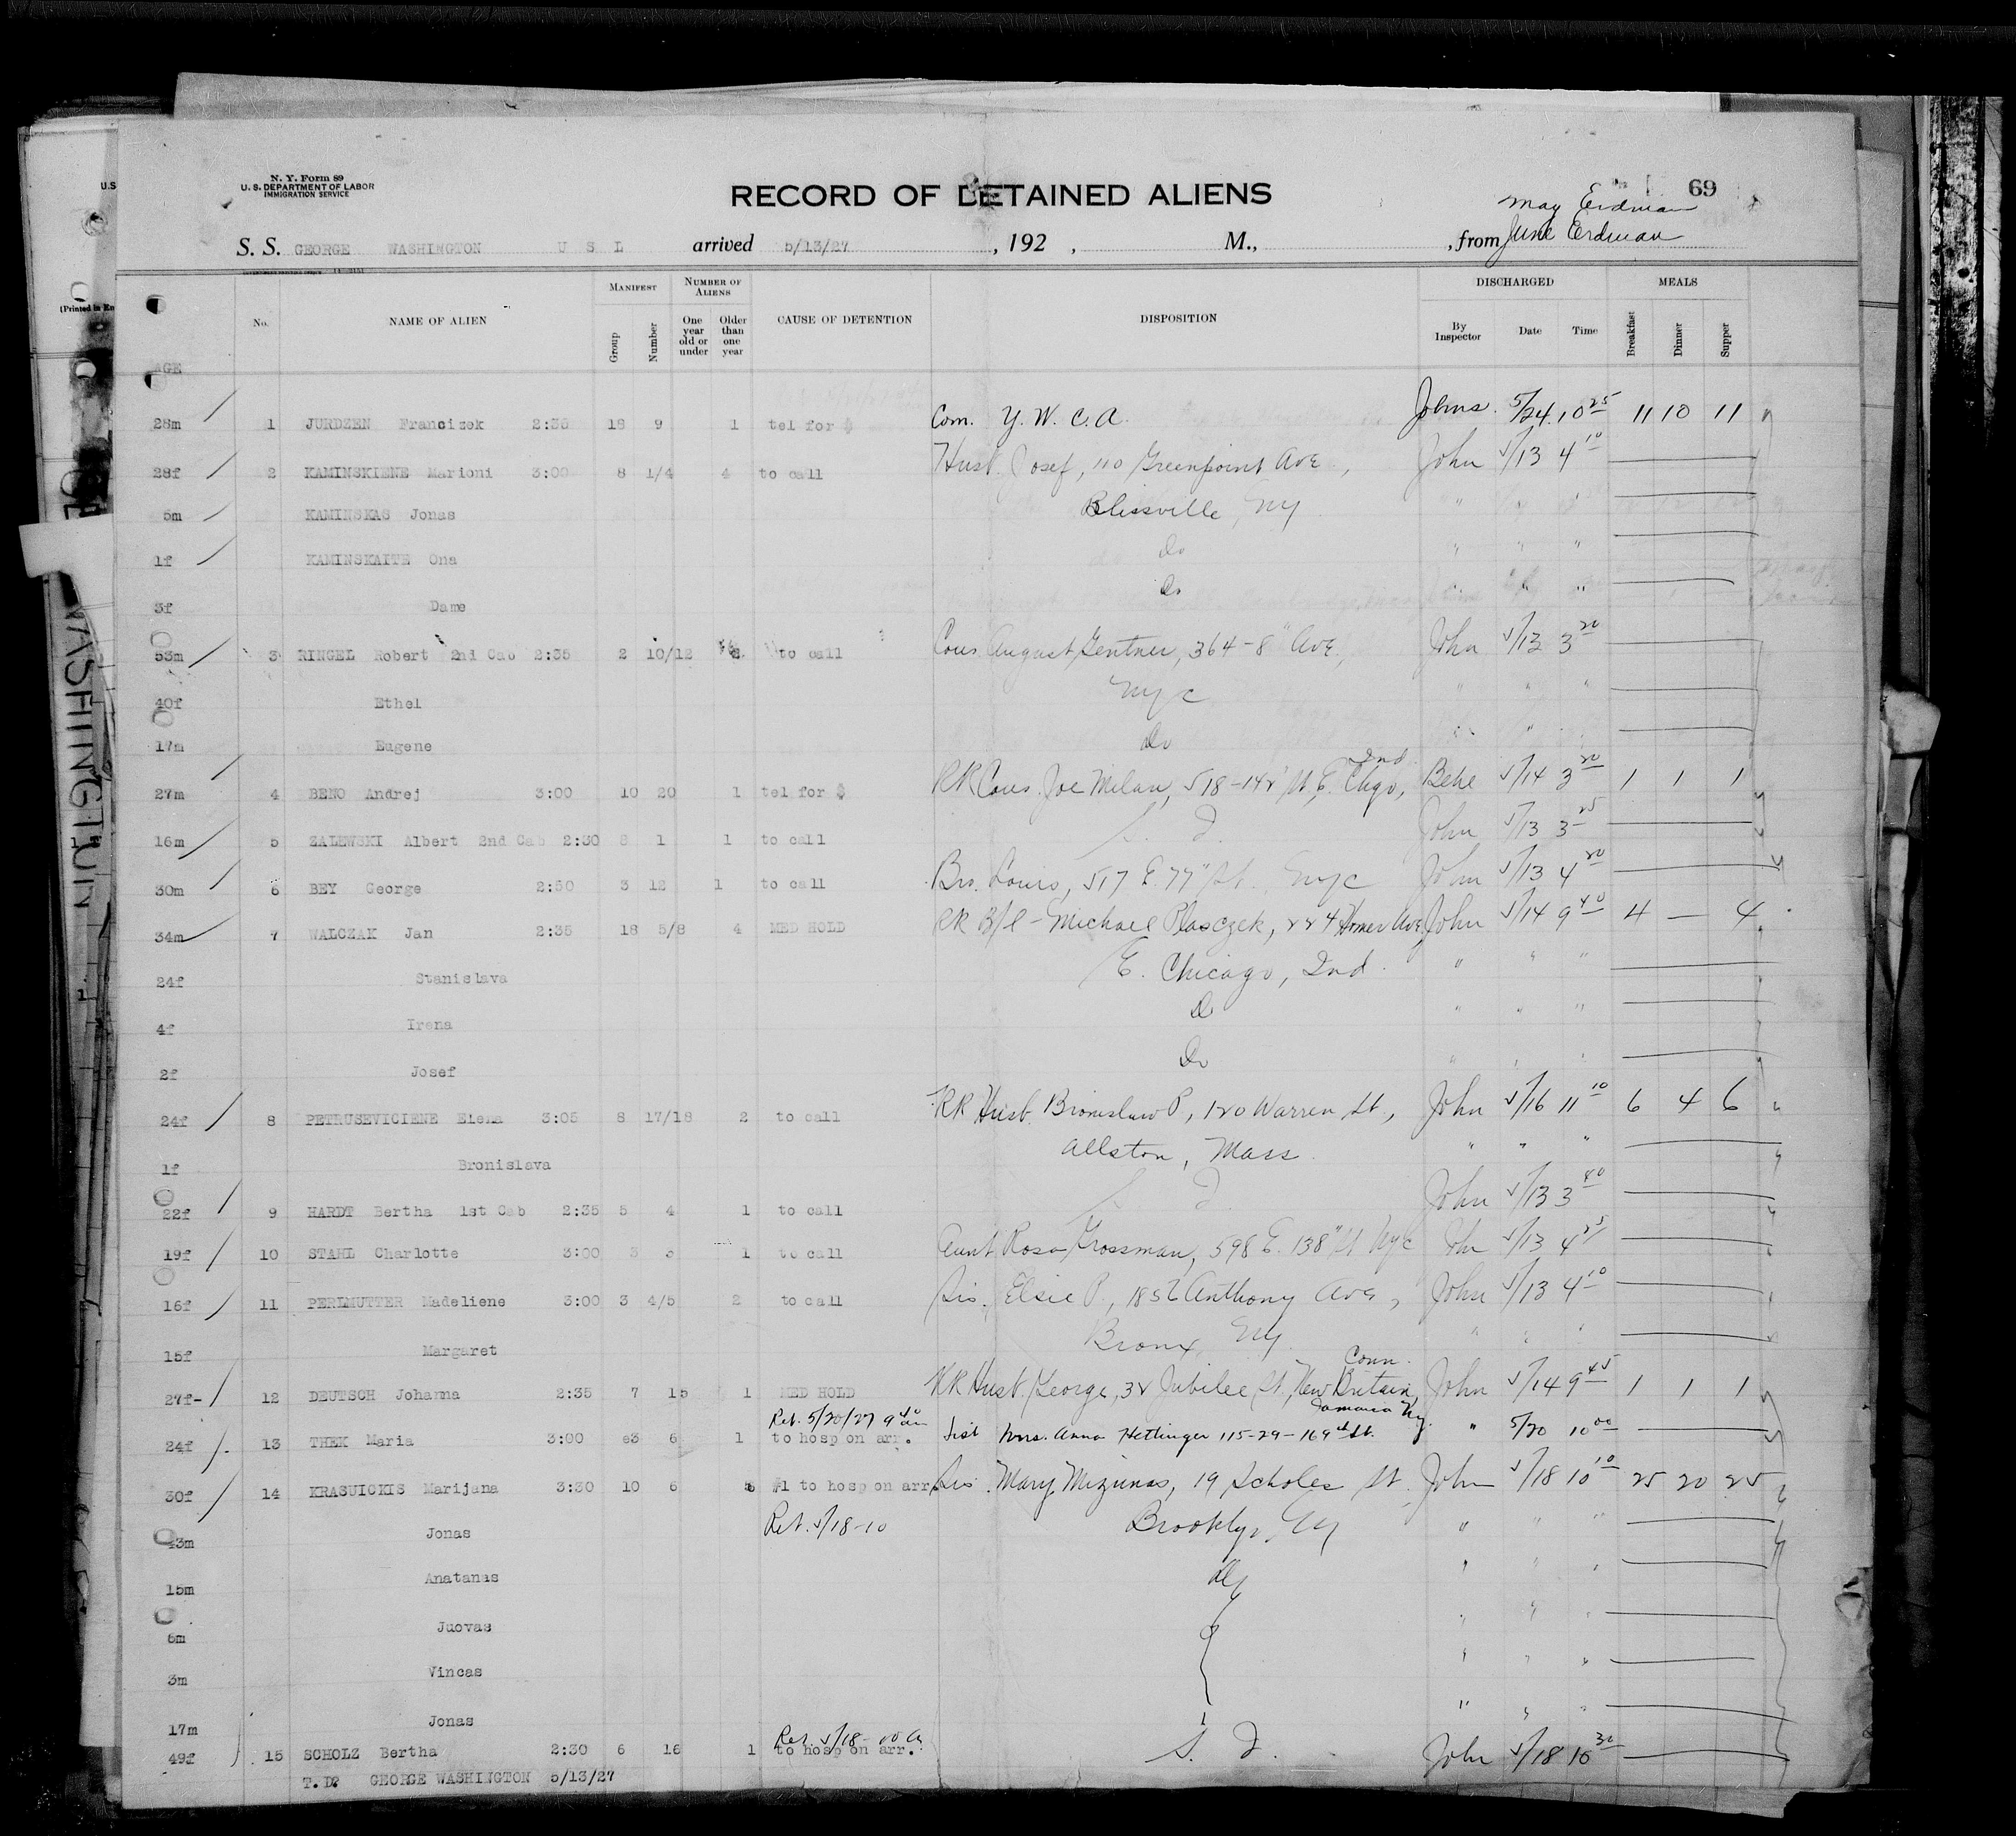 N. Y. Form 89
U. S. DEPARTMENT OF LABOR
IMMIGRATION SERVICE
RECORD OF DETAINED ALIENS
69
May Erdman
S. S. GEORGE WASHINGTON U S L arrived 5/13/27, 192 , M., , from June Erdman
AGE No. NAME OF ALIEN MANIFEST Group Number NUMBER OF ALIENS One year old or under Older than one year CAUSE OF DETENTION DISPOSITION DISCHARGED By Inspector Date Time MEALS Breakfast Dinner Supper
28m 1 JURDZEN Francizek 2:35 18 9 1 tel for $ Com. Y. W. C. A. Johns. 5/24 10 25 11 10 11
28f 2 KAMINSKIENE Marioni 3:00 8 1/4 4 to call Husb. Josef, 110 Greenpoint Ave, John 5/13 4 10
5m KAMINSKAS Jonas Blissville, NY " " "
1f KAMINSKAITE Ona Do " " "
3f Dame Do " " "
53m 3 RINGEL Robert 2nd Cab 2:35 2 10/12 to call Cous August Gentner, 364-8" Ave, John 5/13 3 20
40f Ethel NYC " " "
17m Eugene Do " " "
27m 4 BENO Andrej 3:00 10 20 1 tel for $ RR Cous. Joe Milan, 518-142" St, E. Chgo, Ind. Behe 5/14 3 20 1 1 1
16m 5 ZALEWSKI Albert 2nd Cab 2:30 8 1 1 to call S. I. John 5/13 3 25
30m 6 BEY George 2:50 3 12 1 to call Bro. Louis, 517 E. 77" St. NYC John 5/13 4 20
34m 7 WALCZAK Jan 2:35 18 5/8 4 MED HOLD RR B/l - Michael Plasczek, 224 Homer Ave. John 5/14 9 40 4 — 4
24f Stanislava E. Chicago, Ind. " " "
4f Irena Do " " "
2f Josef Do " " "
24f 8 PETRUSEVICIENE Elena 3:05 8 17/18 2 to call RR Husb. Bronislaw P, 120 Warren St, John 5/16 11 10 6 4 6
1f Bronislava Allston, Mass. " " "
22f 9 HARDT Bertha 1st Cab 2:35 5 4 1 to call S. I. John 5/13 3 40
19f 10 STAHL Charlotte 3:00 3 1 to call Aunt Rosa Grossman, 598 E. 138" St NYC John 5/13 4 25
16f 11 PERLMUTTER Madeliene 3:00 3 4/5 2 to call Sis. Elsie P., 1856 Anthony Ave, John 5/13 4 10
15f Margaret Bronx, NY " " "
27f- 12 DEUTSCH Johanna 2:35 7 15 1 MED HOLD RR Husb. George, 32 Jubilee St, New Britain, Conn. John 5/14 9 45 1 1 1
Ret. 5/20/27 9 40 am
24f 13 THEK Maria 3:00 e3 6 1 to hosp on arr. Sist Mrs. Anna Hettinger 115-29-169th St. Jamaica Ny. " 5/20 10 00
30f 14 KRASUICKIS Marijana 3:30 10 6 #1 to hosp on arr Sis. Mary Mizunas, 19 Scholes St, John 5/18 10 10 25 20 25
43m Jonas Ret. 5/18-10 Brooklyn, NY " " "
15m Anatanas " " "
6m Juovas " " "
3m Vincas " " "
17m Jonas " " "
49f 15 SCHOLZ Bertha 2:30 6 16 1 to hosp on arr. S. I. John 5/18 10 30
T. D? GEORGE WASHINGTON 5/13/27
WASHINGTON